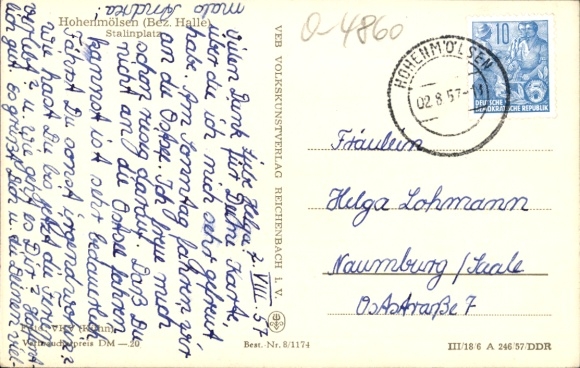 Hohenmölsen (Bez. Halle)
Stalinplatz
Liebe Helga! 2. VIII. 57
Vielen Dank für Deine Karte,
über die ich mich sehr gefreut
habe. Am Sonntag fahren wir
an die Ostsee. Ich freue mich
schon riesig darauf. Daß Du
nicht an die Ostsee fahren
kannst ist sehr bedauerlich.
Fährst Du sonst irgendwo hin?
Wie hast Du bis jetzt die Ferien
verlebt? u. wie geht es Dir? Hoffent-
lich gut. Es grüßt Dich u. die Deinen viel-
mals Andrea
Foto: VKV (Kühn)
Verbraucherpreis DM —.20
Best.-Nr. 8/1174
VEB VOLKSKUNSTVERLAG REICHENBACH i. V.
O-4860
HOHENMÖLSEN
02.8.57
10
DEUTSCHE
DEMOKRATISCHE REPUBLIK
Fräulein
Helga Lohmann
Naumburg/Saale
Oststraße 7
III/18/6 A 246/57/DDR